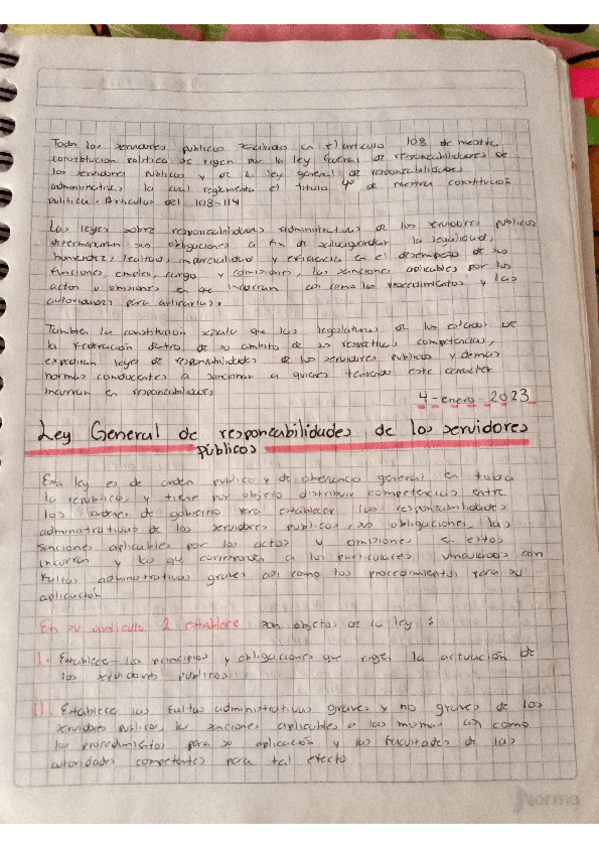 Todo los servidores publicos señalados en el articulo 108 de nuestra
constitucion politica se rigen por la ley federal de responsabilidades de
los servidores publicos y de la ley general de responsabilidades
administrativas la cual reglamenta el titulo 4º de nuestra constitucion
politica. Articulos del 108-114
Las leyes sobre responsabilidades administrativas de los servidores publicos
determinaran sus obligaciones a fin de salvaguardar la legalidad,
honradez, lealtad, imparcialidad y eficiencia en el desempeño de sus
funciones, empleos, cargo y comisiones, las sanciones aplicables por los
actos u omisiones en que incurran asi como los procedimientos y las
autoridades para aplicarlas.
Tambien la constitucion señala que las legislaturas de los estados de
la federacion dentro de su ambito de sus respectivas competencias,
expediran leyes de responsabilidades de los servidores publicos y demas
normas conducentes a sancionar a quienes teniendo este caracter
incurran en responsabilidades
4-enero 2023
Ley General de responsabilidades de los servidores
públicos
Esta ley es de orden publico y de observancia general en toda
la republica y tiene por objeto distribuir competencias entre
los ordenes de gobierno para establecer las responsabilidades
administrativas de los servidores publicos, sus obligaciones, las
sanciones aplicables por los actos u omisiones en estos
incurran y las que correspondan a los particulares vinculados con
faltas administrativas graves asi como los procedimientos para su
aplicacion
En su articulo 2 establece son objetos de la ley :
I. Establecer los principios y obligaciones que rigen la actuacion de
los servidores publicos
II. Establecer las faltas administrativas graves y no graves de los
servidores publicos, las sanciones aplicables a las mismas asi como
los procedimientos para su aplicacion y las facultades de las
autoridades competentes para tal efecto
Norma